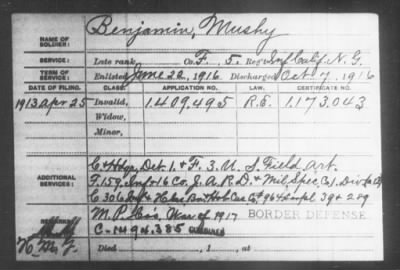 NAME OF SOLDIER: Benjamin, Mushy
SERVICE: Late rank Co. F. 5. Reg't Inf Calif. N. G.
TERM OF SERVICE: Enlisted June 22, 1916 Discharged Oct 7, 1916
DATE OF FILING. CLASS. APPLICATION NO. LAW. CERTIFICATE NO.
1913 Apr 25 Invalid, 1.409.495 R.E. 1.173.043
Widow,
Minor,
ADDITIONAL SERVICES: Det. 1 & F. 3. U. S Field Art.
F. 159. Inf. 16 Co. J. A. R. D. & Mil. Spec. Co. 1. Div.
C 306
REMARKS: M. P. War of 1917 BORDER DEFENSE
C-1494.385
Died , 1 , at